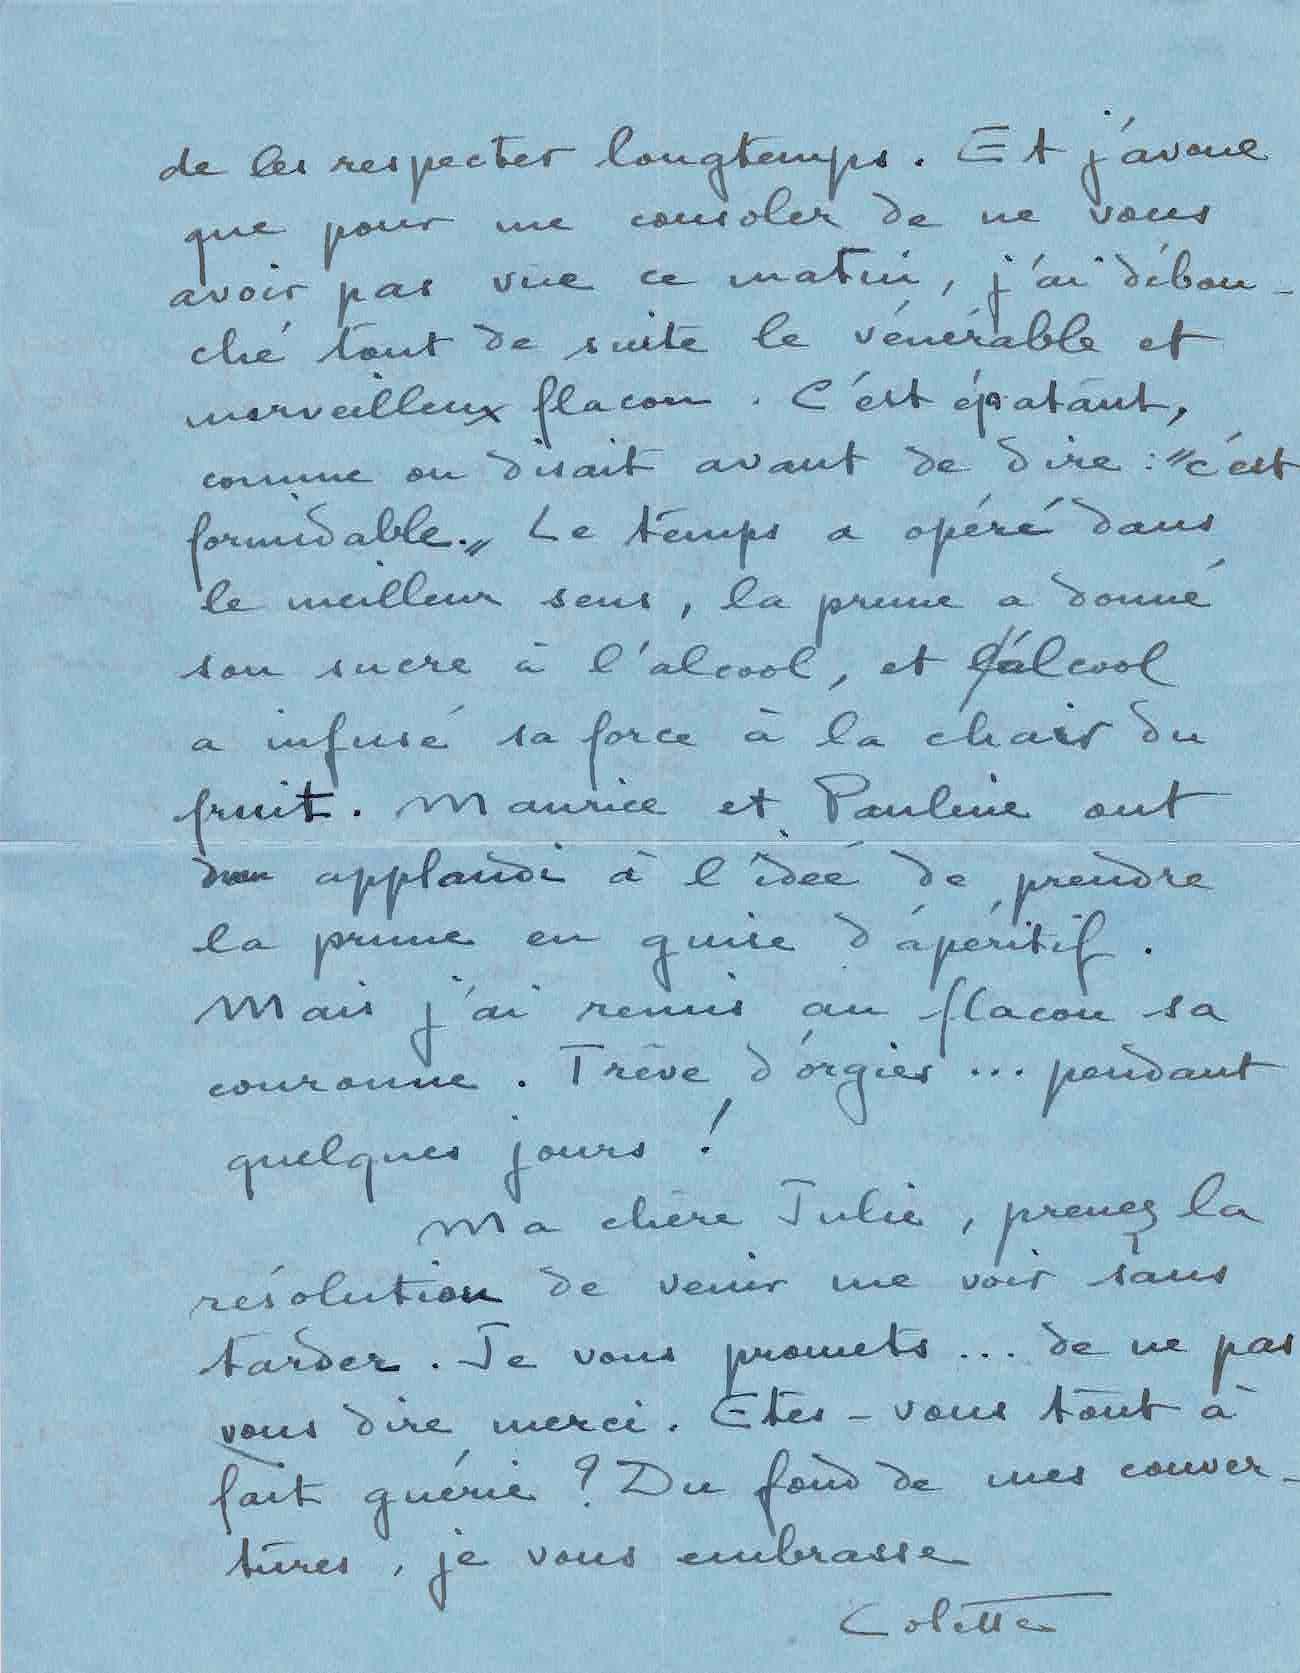 de les respecter longtemps. Et j'avoue
que pour me consoler de ne vous
avoir pas vue ce matin, j'ai débou-
ché tout de suite le vénérable et
merveilleux flacon. C'est épatant,
comme on disait avant de dire : "c'est
formidable." Le temps a opéré dans
le meilleur sens, la prune a donné
son sucre à l'alcool, et l'alcool
a infusé sa force à la chair du
fruit. Maurice et Pauline ont
applaudi à l'idée de prendre
la prune en guise d'apéritif.
Mais j'ai remis au flacon sa
couronne. Trêve d'orgies... pendant
quelques jours !
Ma chère Julie, prenez la
résolution de venir me voir sans
tarder. Je vous promets... de ne pas
vous dire merci. Etes-vous tout à
fait guérie ? Du fond de mes couver-
tures, je vous embrasse
Colette